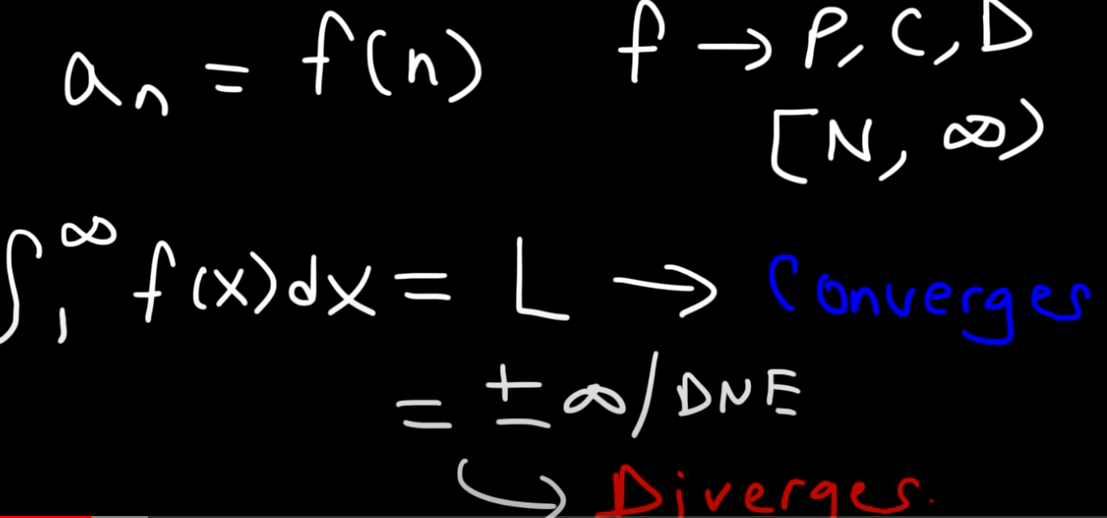 aₙ = f(n) f → P, C, D
[N, ∞)
∫₁^∞ f(x)dx = L → Converges
= ± ∞/DNE
↳ Diverges.